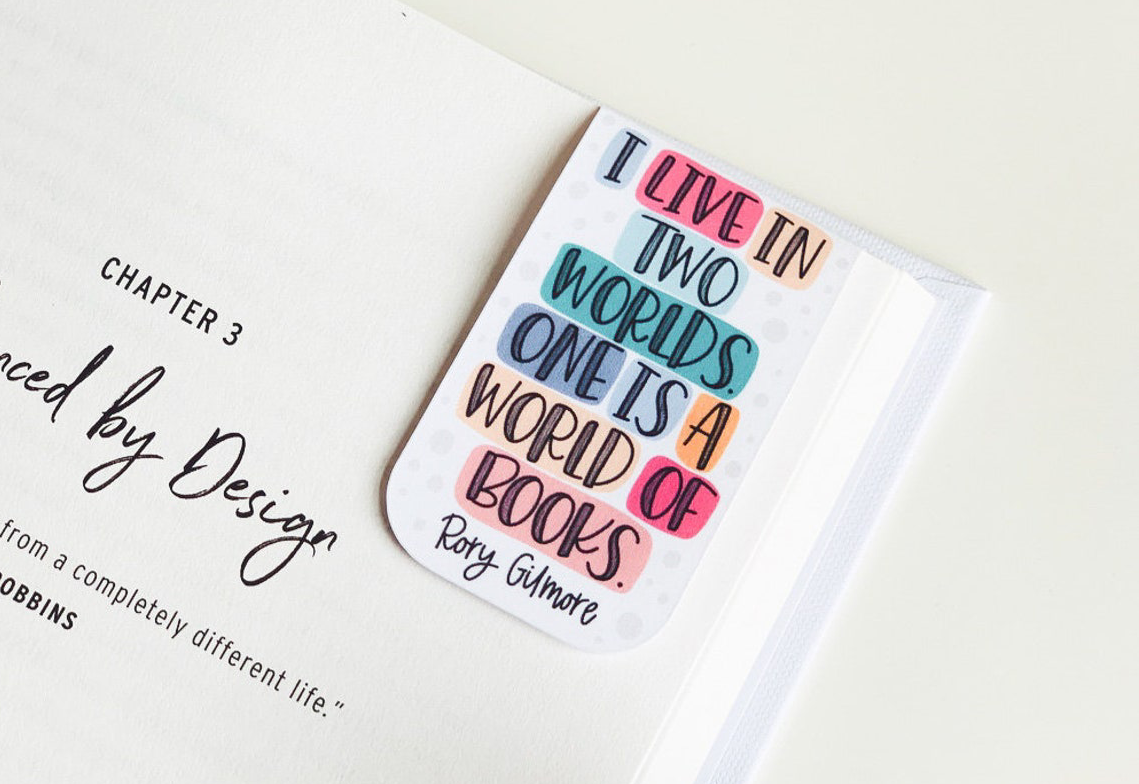 CHAPTER 3
by Design
from a completely different life."
I LIVE IN
TWO
WORLDS.
ONE IS A
WORLD OF
BOOKS.
Rory Gilmore